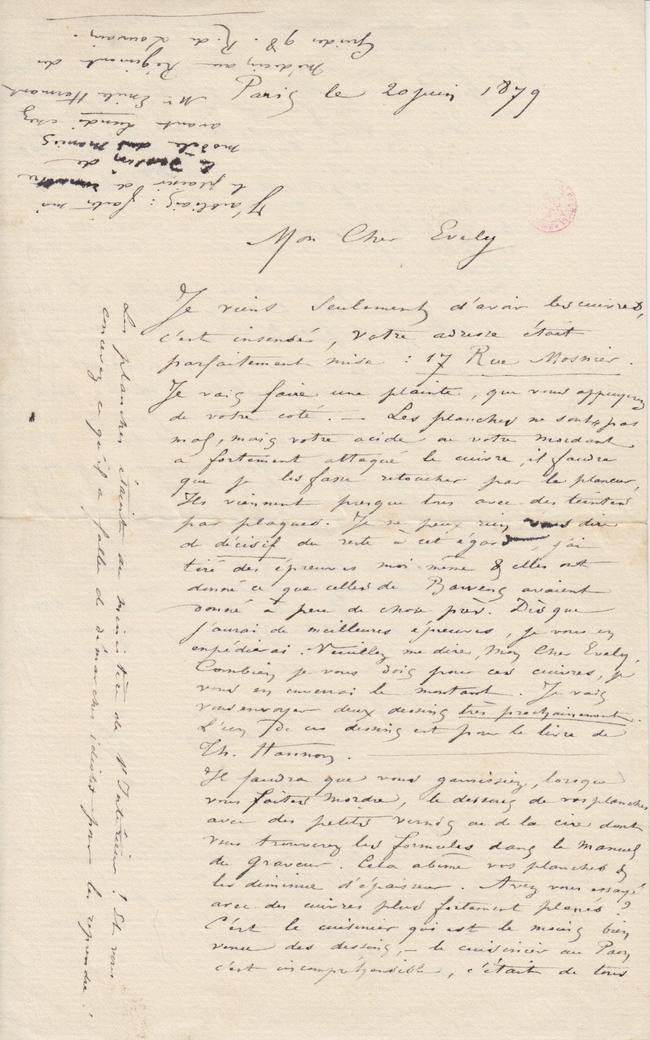 Paris le 20 juin 1879
Mon Cher Evely
Je viens seulement d'avoir les cuivres,
c'est insensé, votre adresse était
parfaitement mise : 17 Rue Mosnier.
Je vais faire une plainte, que vous appuyerez
de votre coté. — Les planches ne sont pas
mal, mais votre acide ou votre mordant
a fortement attaqué le cuivre, il faudra
que je les fasse retoucher par le planeur,
Ils viennent presque tres avec des teintes
par plaques. Je ne peux rien vous dire
de décisif du reste à cet égard, j'ai
tiré des épreuves moi même & elles ont
donné ce que celles de Bauwens avaient
donné à peu de chose près. Dès que
j'aurai de meilleures épreuves, je vous en
expédierai. Veuillez me dire, Mon Cher Evely,
Combien je vous dois pour ces cuivres, je
vous en enverrai le montant. Je vais
vous envoyer deux dessins très prochainement.
L'un de ces dessins est pour le livre de
Th. Hannon.
Il faudra que vous garnissiez, lorsque
vous faites mordre, le dessous de vos planches
avec des petits vernis ou de la cire dont
vous trouverez les formules dans le manuel
du graveur. Cela abîme vos planches &
les diminue d'épaisseur. Avez vous essayé
avec des cuivres plus fortement planés ?
C'est le cuisinier qui est le moins bien
venu des dessins, — le cuisinier au Paon
c'est incompréhensible, c'était de tous
Les planches étaient au ministère de l'Intérieur ! Et vous
concevez ce qu'il a fallu de démarches idiotes pour les reprendre !
J'oubliais : faites moi
le plaisir de
le dessin de
modèle
avant Lundi chez
Mr Emile Hermant
Médecin au Régiment des
Guides 98. R. de Louvain.